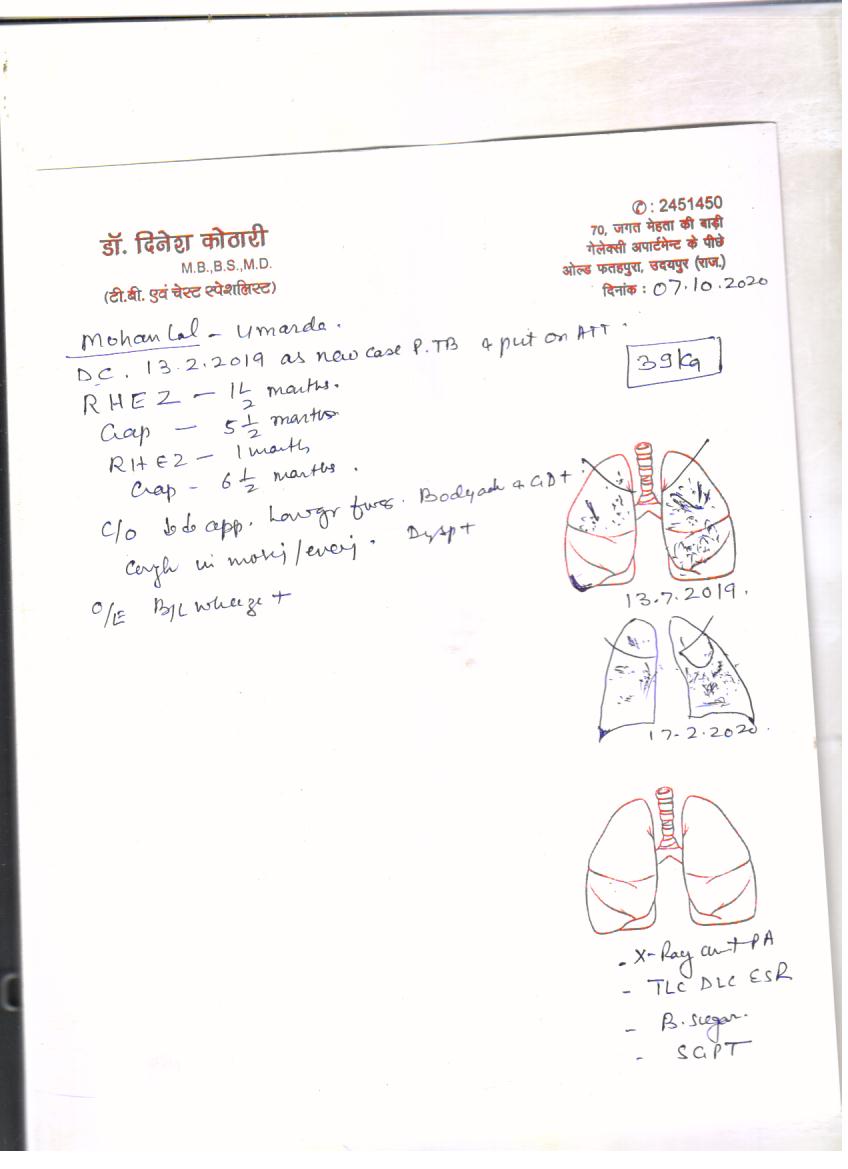 डॉ. दिनेश कोठारी
M.B.,B.S.,M.D.
(टी.बी. एवं चेस्ट स्पेशलिस्ट)
✆: 2451450
70, जगत मेहता की बाड़ी
गेलेक्सी अपार्टमेन्ट के पीछे
ओल्ड फतहपुरा, उदयपुर (राज.)
दिनांक : 07.10.2020
Mohan Lal - Umarda.
DC. 13.2.2019 as new case P.TB & put on ATT.
39kg
RHEZ - 1 1/2 months.
Cap - 5 1/2 months
RHEZ - 1 month
Cap - 6 1/2 months.
C/o app. Low gr fever. Bodyach & GD+
Cough in morj/evenj. Dysp+
O/E B/L wheeze +
13.7.2019.
17-2.2020.
- X-Ray chest PA
- TLC DLC ESR
- B. sugar.
- SGPT